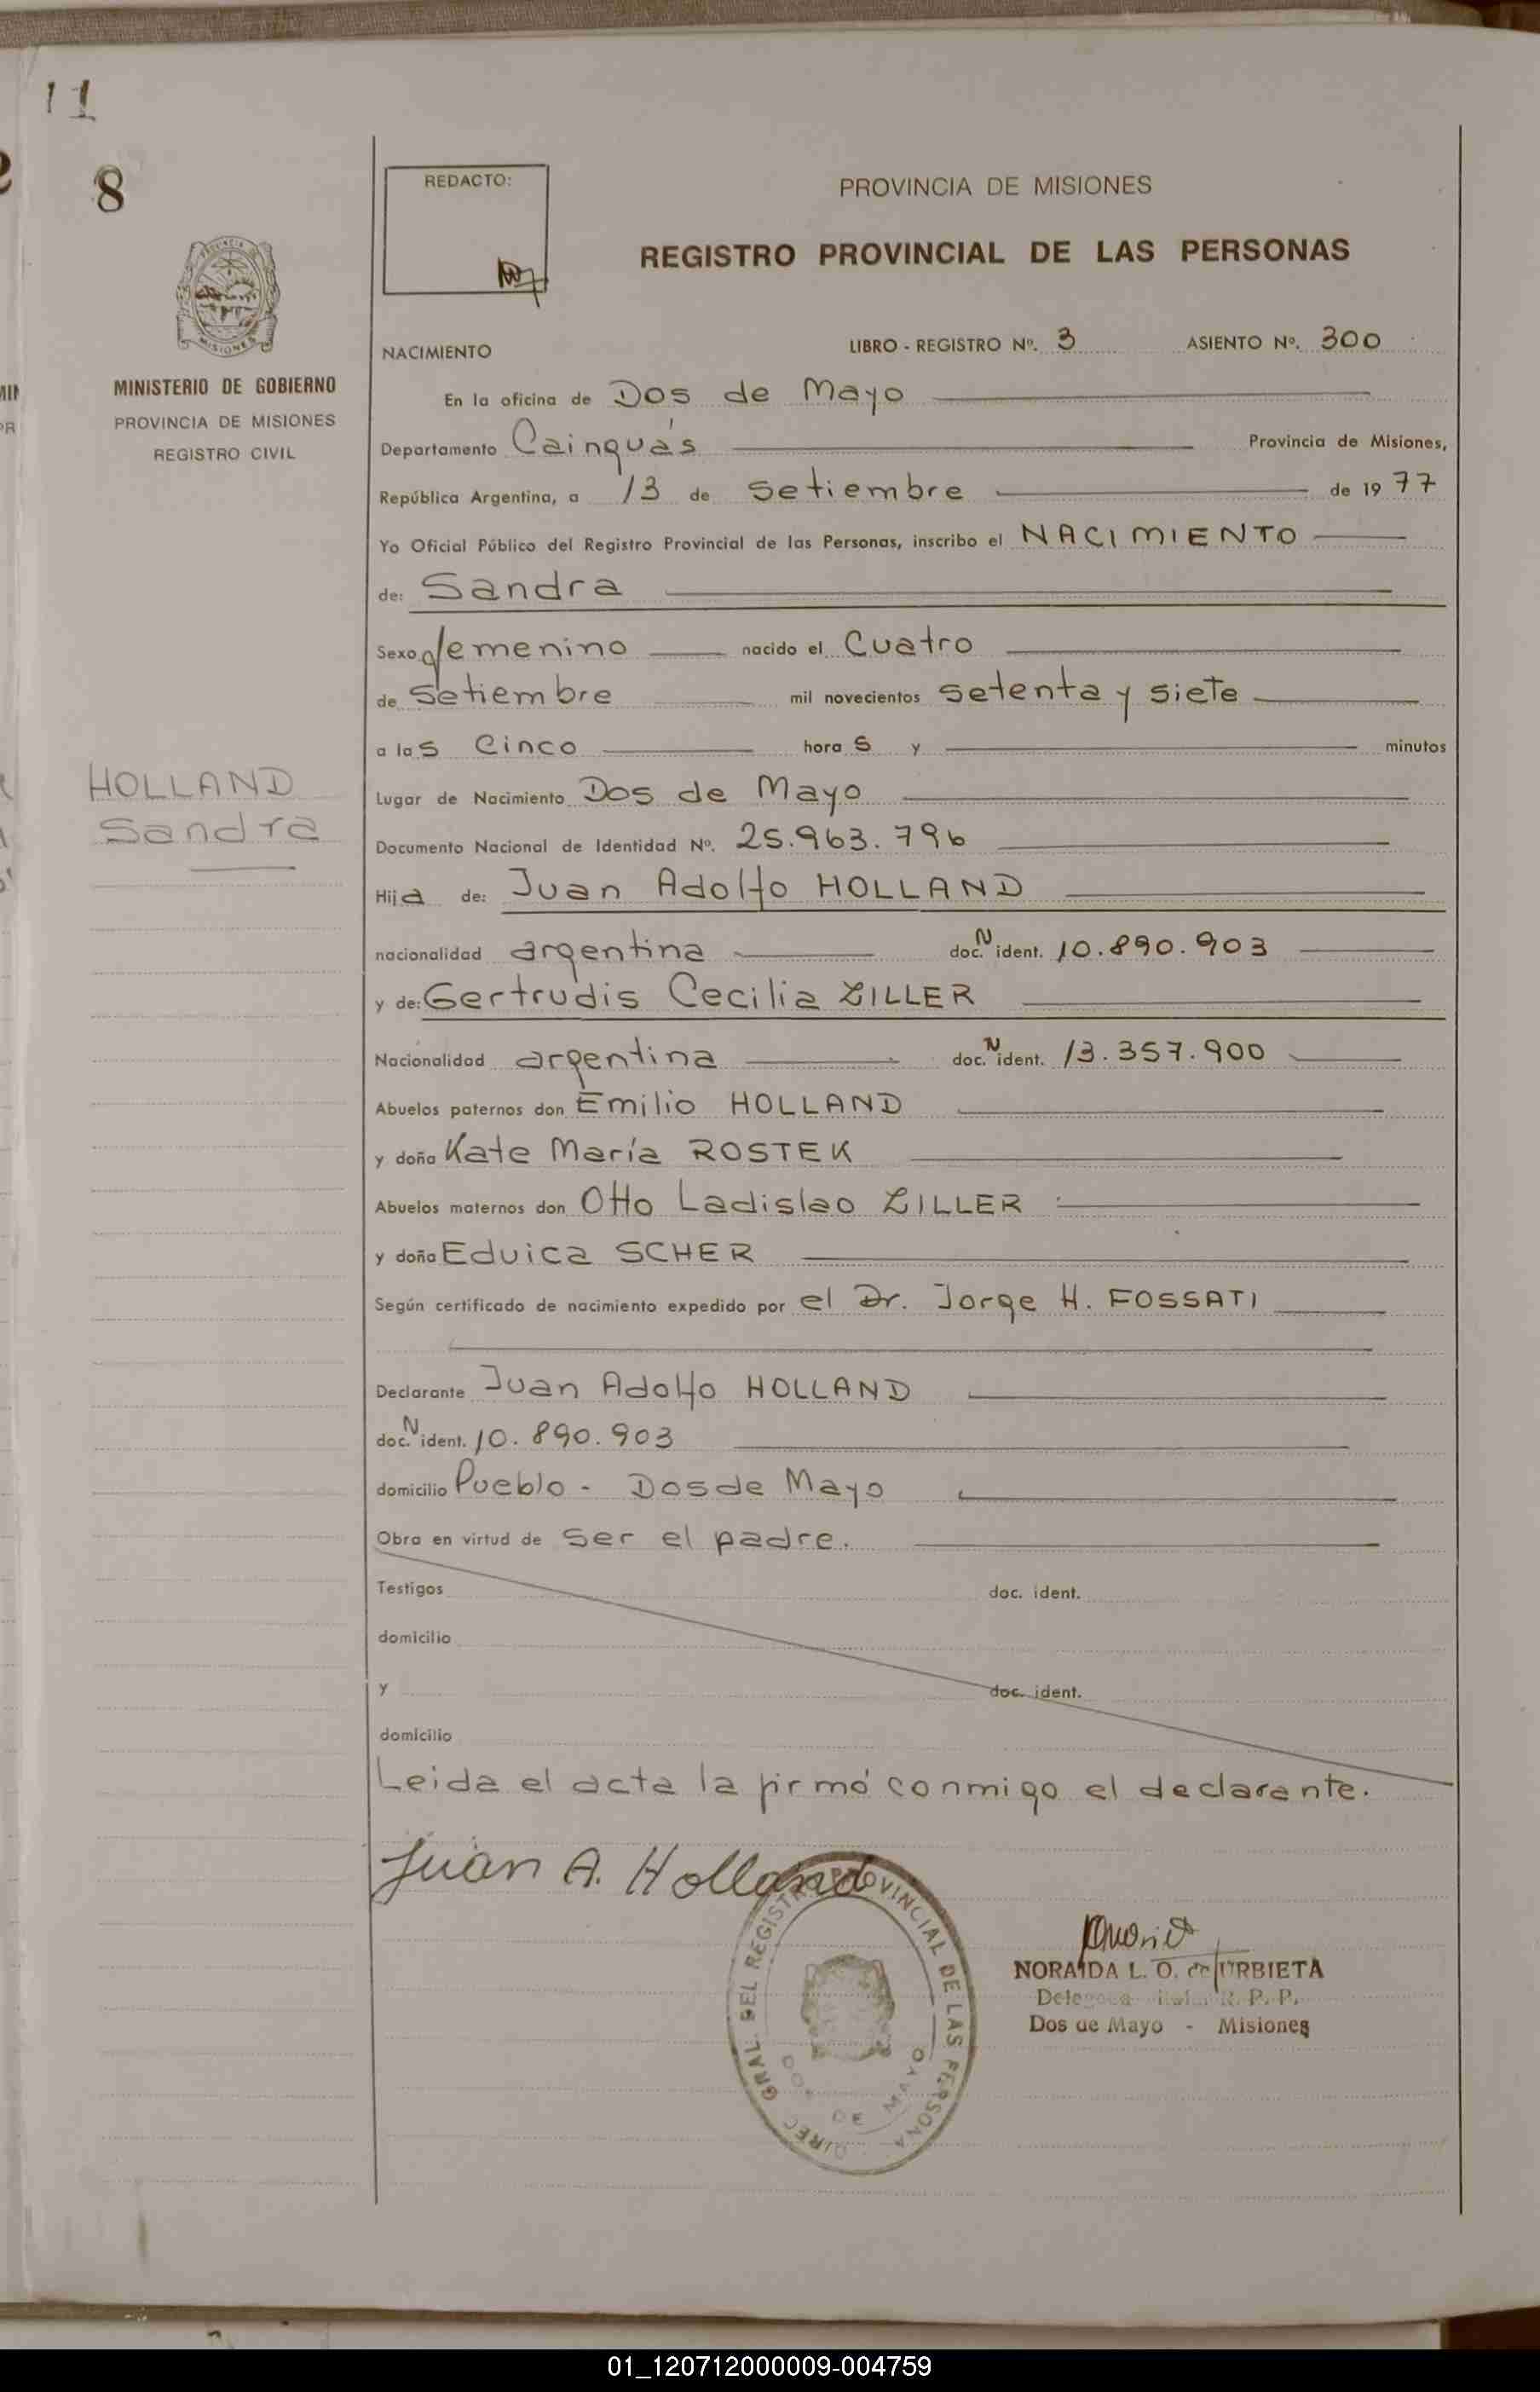 11
8
REDACTO:
PROVINCIA DE MISIONES
REGISTRO PROVINCIAL DE LAS PERSONAS
MISIONES
MINISTERIO DE GOBIERNO
PROVINCIA DE MISIONES
REGISTRO CIVIL
HOLLAND
Sandra
NACIMIENTO LIBRO - REGISTRO Nº. 3 ASIENTO Nº. 300
En la oficina de Dos de Mayo
Departamento Cainguás Provincia de Misiones,
República Argentina, a 13 de Setiembre de 19 77
Yo Oficial Público del Registro Provincial de las Personas, inscribo el NACIMIENTO
de: Sandra
Sexo femenino nacido el Cuatro
de Setiembre mil novecientos setenta y siete
a las Cinco horas y minutos
Lugar de Nacimiento Dos de Mayo
Documento Nacional de Identidad Nº. 25.963.796
Hija de: Juan Adolfo HOLLAND
nacionalidad argentina doc. N ident. 10.890.903
y de: Gertrudis Cecilia ZILLER
Nacionalidad argentina doc. N ident. 13.357.900
Abuelos paternos don Emilio HOLLAND
y doña Kate María ROSTEK
Abuelos maternos don Otto Ladislao ZILLER
y doña Eduica SCHER
Según certificado de nacimiento expedido por el Dr. Jorge H. FOSSATI
Declarante Juan Adolfo HOLLAND
doc. N ident. 10.890.903
domicilio Pueblo - Dos de Mayo
Obra en virtud de ser el padre.
Testigos doc. ident.
domicilio
y doc. ident.
domicilio
Leida el acta la firmó conmigo el declarante.
Juan A. Holland
DIREC. GRAL. DEL REGISTRO PROVINCIAL DE LAS PERSONA
DOS DE MAYO
NORAIDA L. O. de URBIETA
R. P. P.
Dos de Mayo - Misiones
01_120712000009-004759